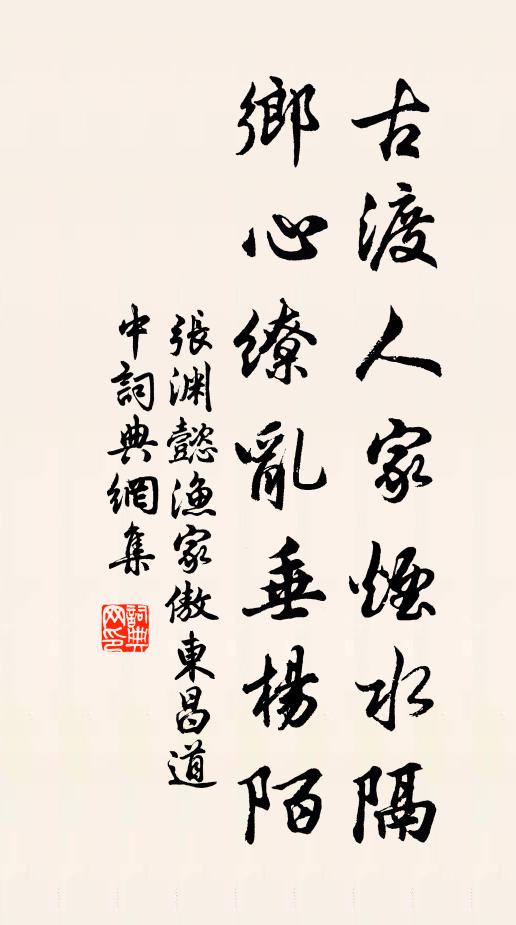 古渡人家煙水隔
鄉心繚亂垂楊陌
張渊懿漁家傲東昌道
中詞典網集
詞典
网印